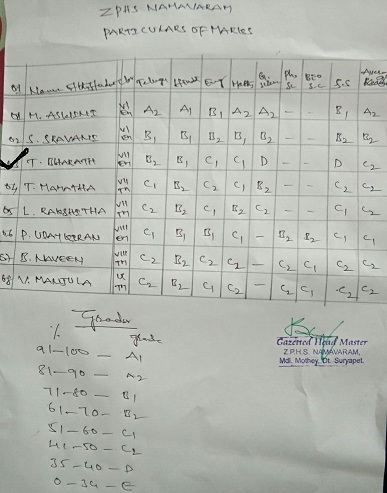 ZPHS NAMAVARAM
PARTICULARS OF MARKS
Name of the Student Cls Telugu Hindi Eng Maths G. Science Phy Sc BIO S.C S.S Aver
01 M. ASWINI VI EM A2 A1 B1 A2 A2 - - B1 A2
02 S. SRAVANI VI EM B1 B1 B2 B1 B2 - - B2 B2
T. BHARATH VII EM B2 B1 C1 C1 D - - D C2
04 T. MAMATHA VII TM C1 B2 C2 C1 B2 - - C2 C2
05 L. RAKSHITHA VII TM C2 B2 C1 B2 C2 - - C1 C2
06 P. UDAY KIRAN VIII EM C1 B1 B1 C1 - B2 B2 C1 C1
07 B. NAVEEN VIII TM C2 B2 C2 C2 - C2 C1 C2 C2
08 V. MANJULA IX TM C2 B2 C1 C2 - C2 C1 C2 C2
Grades
% grade
91-100 - A1
81-90 - A2
71-80 - B1
61-70 - B2
51-60 - C1
41-50 - C2
35-40 - D
0-34 - E
Gazetted Head Master
Z.P.H.S. NAMAVARAM,
Mdl. Mothey, Dt. Suryapet.